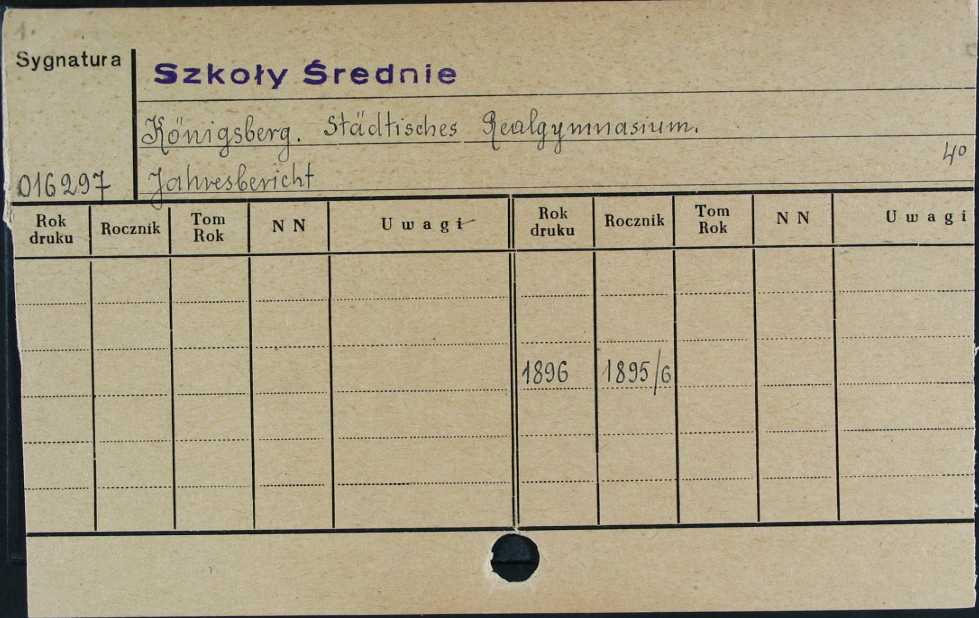 1.
Sygnatura
Szkoły Średnie
Königsberg. Städtisches Realgymnasium.
4°
016297
Jahresbericht
Rok druku Rocznik Tom Rok N N Uwagi Rok druku Rocznik Tom Rok N N Uwagi
1896 1895/6